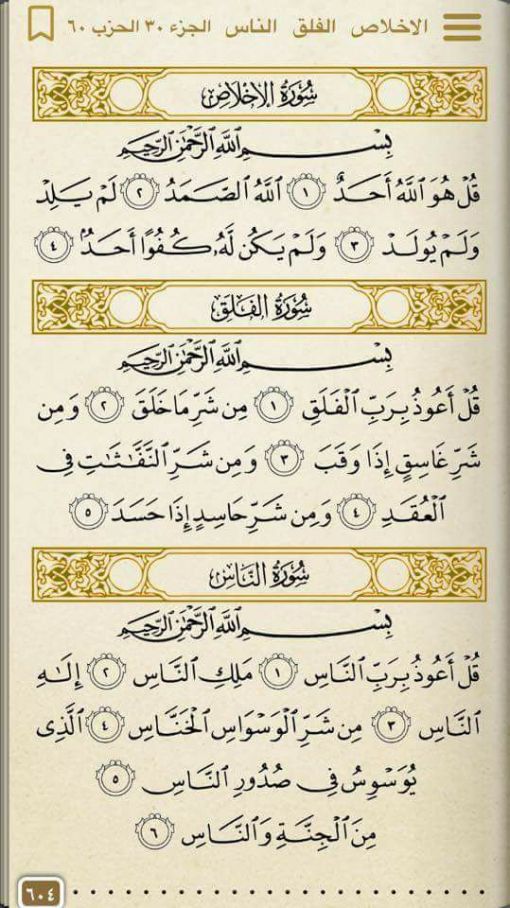 الاخلاص الفلق الناس الجزء ٣٠ الحزب ٦٠
سُورَةُ الإِخْلَاصِ
بِسْمِ ٱللَّهِ ٱلرَّحْمَٰنِ ٱلرَّحِيمِ
قُلْ هُوَ ٱللَّهُ أَحَدٌ ١ ٱللَّهُ ٱلصَّمَدُ ٢ لَمْ يَلِدْ
وَلَمْ يُولَدْ ٣ وَلَمْ يَكُن لَّهُۥ كُفُوًا أَحَدٌۢ ٤
سُورَةُ الفَلَقِ
بِسْمِ ٱللَّهِ ٱلرَّحْمَٰنِ ٱلرَّحِيمِ
قُلْ أَعُوذُ بِرَبِّ ٱلْفَلَقِ ١ مِن شَرِّ مَا خَلَقَ ٢ وَمِن
شَرِّ غَاسِقٍ إِذَا وَقَبَ ٣ وَمِن شَرِّ ٱلنَّفَّٰثَٰتِ فِى
ٱلْعُقَدِ ٤ وَمِن شَرِّ حَاسِدٍ إِذَا حَسَدَ ٥
سُورَةُ النَّاسِ
بِسْمِ ٱللَّهِ ٱلرَّحْمَٰنِ ٱلرَّحِيمِ
قُلْ أَعُوذُ بِرَبِّ ٱلنَّاسِ ١ مَلِكِ ٱلنَّاسِ ٢ إِلَٰهِ
ٱلنَّاسِ ٣ مِن شَرِّ ٱلْوَسْوَاسِ ٱلْخَنَّاسِ ٤ ٱلَّذِى
يُوَسْوِسُ فِى صُدُورِ ٱلنَّاسِ ٥
مِنَ ٱلْجِنَّةِ وَٱلنَّاسِ ٦
٦٠٤